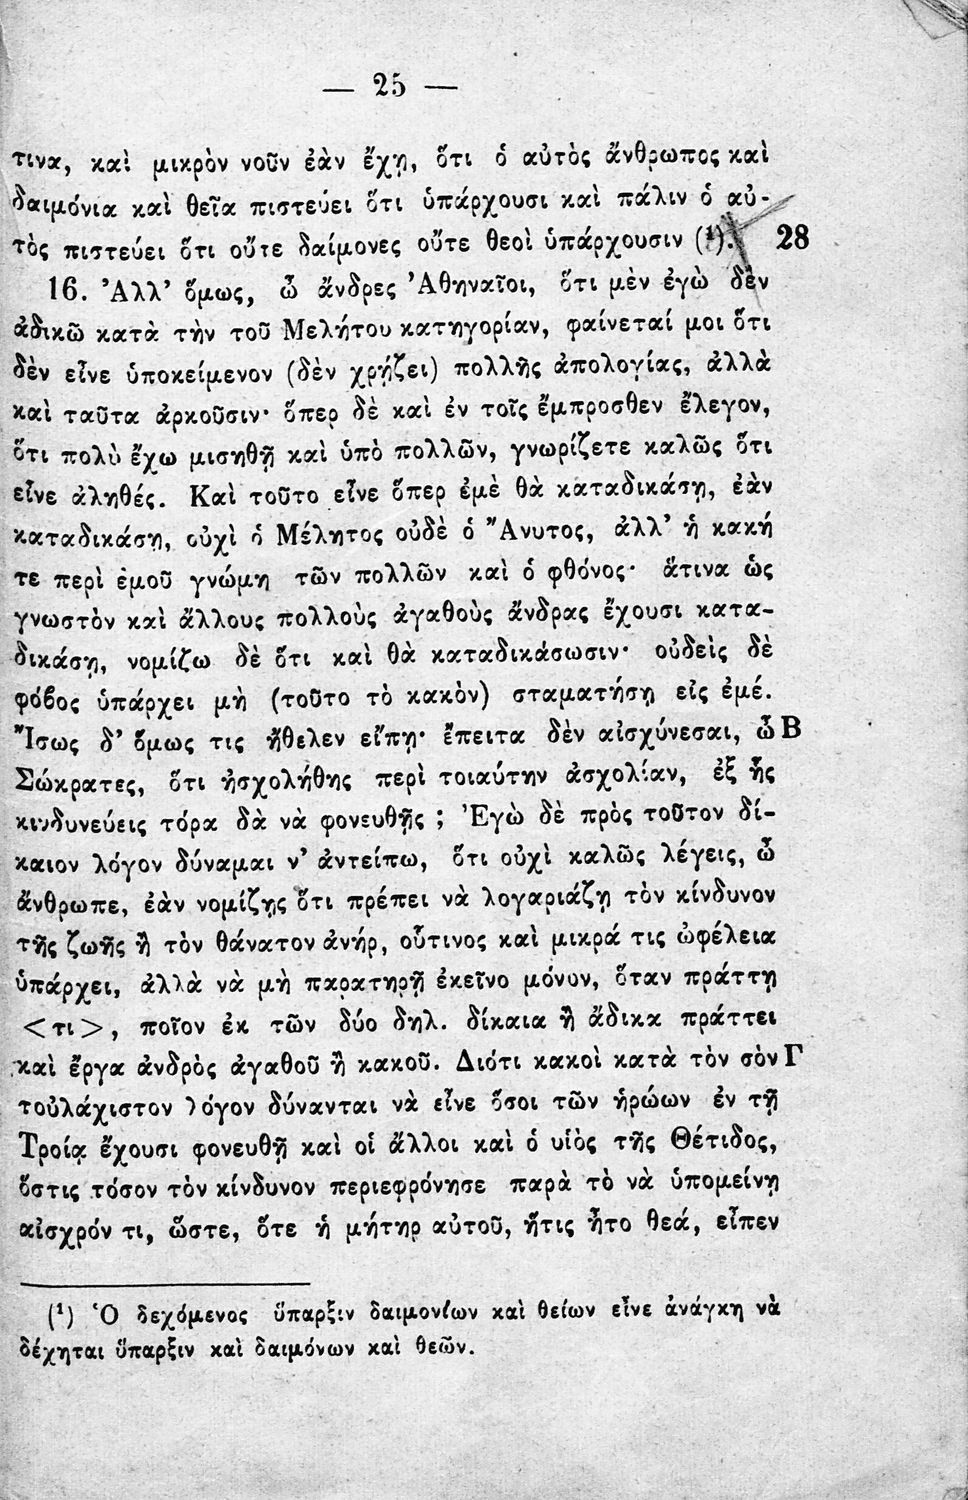 — 25 —
τινα, καὶ μικρὸν νοῦν ἐὰν ἔχῃ, ὅτι ὁ αὐτὸς ἄνθρωπος καὶ
δαιμόνια καὶ θεῖα πιστεύει ὅτι ὑπάρχουσι καὶ πάλιν ὁ αὐ-
τὸς πιστεύει ὅτι οὔτε δαίμονες οὔτε θεοὶ ὑπάρχουσιν (¹). 28
16. Ἀλλ’ ὅμως, ὦ ἄνδρες Ἀθηναῖοι, ὅτι μὲν ἐγὼ δὲν
ἀδικῶ κατὰ τὴν τοῦ Μελήτου κατηγορίαν, φαίνεταί μοι ὅτι
δὲν εἶνε ὑποκείμενον (δὲν χρῄζει) πολλῆς ἀπολογίας, ἀλλὰ
καὶ ταῦτα ἀρκοῦσιν· ὅπερ δὲ καὶ ἐν τοῖς ἔμπροσθεν ἔλεγον,
ὅτι πολὺ ἔχω μισηθῆ καὶ ὑπὸ πολλῶν, γνωρίζετε καλῶς ὅτι
εἶνε ἀληθές. Καὶ τοῦτο εἶνε ὅπερ ἐμὲ θὰ καταδικάσῃ, ἐὰν
καταδικάσῃ, οὐχὶ ὁ Μέλητος οὐδὲ ὁ Ἄνυτος, ἀλλ’ ἡ κακή
τε περὶ ἐμοῦ γνώμη τῶν πολλῶν καὶ ὁ φθόνος· ἅτινα ὡς
γνωστὸν καὶ ἄλλους πολλοὺς ἀγαθοὺς ἄνδρας ἔχουσι κατα-
δικάσῃ, νομίζω δὲ ὅτι καὶ θὰ καταδικάσωσιν· οὐδεὶς δὲ
φόβος ὑπάρχει μὴ (τοῦτο τὸ κακὸν) σταματήσῃ εἰς ἐμέ.
Ἴσως δ’ ὅμως τις ἤθελεν εἴπῃ· ἔπειτα δὲν αἰσχύνεσαι, ὦ Β
Σώκρατες, ὅτι ἠσχολήθης περὶ τοιαύτην ἀσχολίαν, ἐξ ἧς
κινδυνεύεις τόρα δὰ νὰ φονευθῇς ; Ἐγὼ δὲ πρὸς τοῦτον δί-
καιον λόγον δύναμαι ν’ ἀντείπω, ὅτι οὐχὶ καλῶς λέγεις, ὦ
ἄνθρωπε, ἐὰν νομίζῃς ὅτι πρέπει νὰ λογαριάζῃ τὸν κίνδυνον
τῆς ζωῆς ἢ τὸν θάνατον ἀνήρ, οὗτινος καὶ μικρά τις ὠφέλεια
ὑπάρχει, ἀλλὰ νὰ μὴ παρατηρῇ ἐκεῖνο μόνον, ὅταν πράττῃ
<τι>, ποῖον ἐκ τῶν δύο δηλ. δίκαια ἢ ἄδικα πράττει
καὶ ἔργα ἀνδρὸς ἀγαθοῦ ἢ κακοῦ. Διότι κακοὶ κατὰ τὸν σὸν Γ
τοὐλάχιστον λόγον δύνανται νὰ εἶνε ὅσοι τῶν ἡρώων ἐν τῇ
Τροίᾳ ἔχουσι φονευθῆ καὶ οἱ ἄλλοι καὶ ὁ υἱὸς τῆς Θέτιδος,
ὅστις τόσον τὸν κίνδυνον περιεφρόνησε παρὰ τὸ νὰ ὑπομείνῃ
αἰσχρόν τι, ὥστε, ὅτε ἡ μήτηρ αὐτοῦ, ἥτις ἦτο θεά, εἶπεν
(¹) Ὁ δεχόμενος ὕπαρξιν δαιμονίων καὶ θείων εἶνε ἀνάγκη νὰ
δέχηται ὕπαρξιν καὶ δαιμόνων καὶ θεῶν.